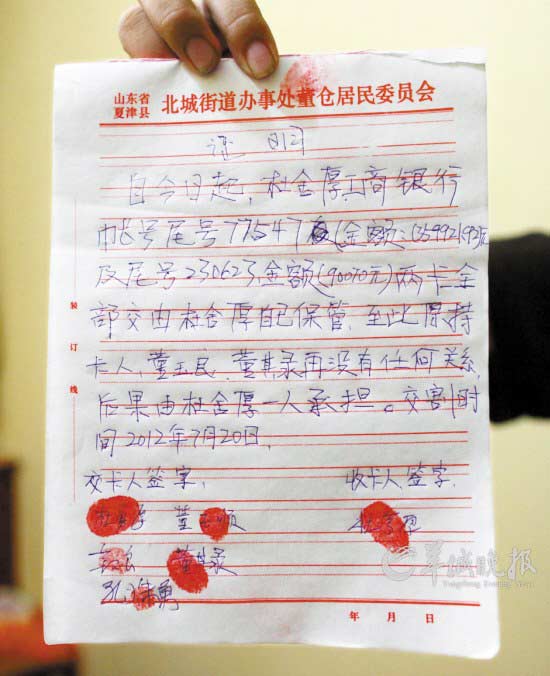 山东省
夏津县
北城街道办事处董仓居民委员会
证 明
自今日起，杜金厚工商银行
帐号尾号77547 (金额:
及尾号230623金额(90070元)两卡全
部交由杜金厚自己保管，至此原持
卡人，董玉民、董其录再没有任何关系，
后果由杜金厚一人承担。交割时
间2012年7月20日.
交卡人签字， 收卡人签字.
董 顺
董其录
孔 勇
装订线
年 月 日
羊城晚报
Yangcheng Evening News